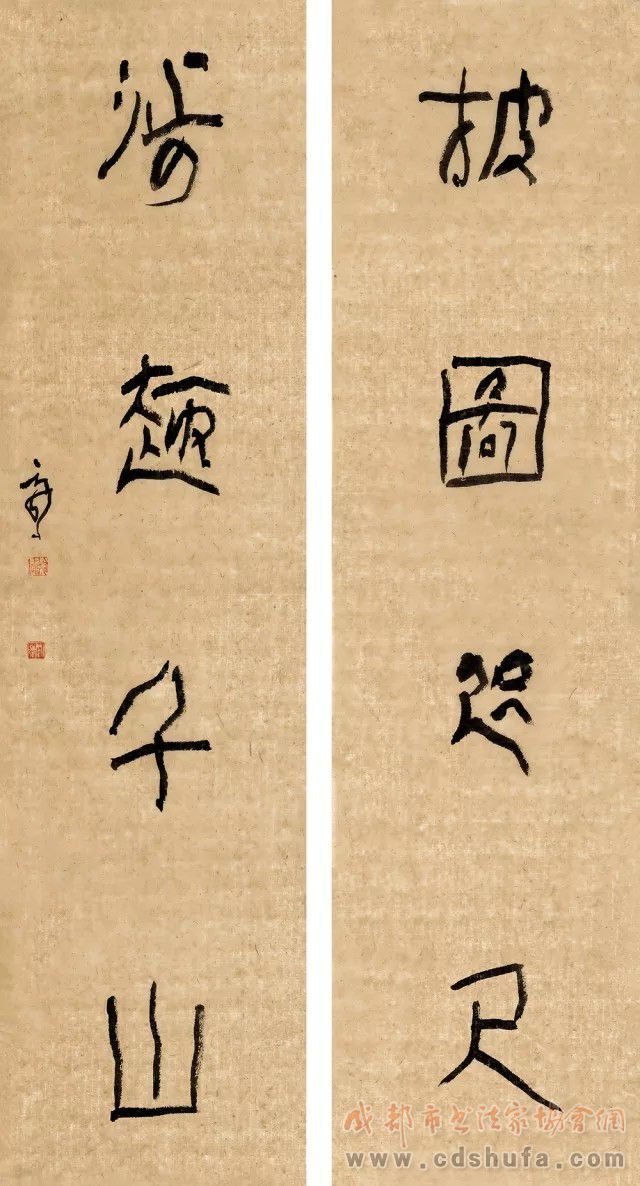 披圖咫尺
涉趣千山
成都市书法家協會網
www.cdshufa.com